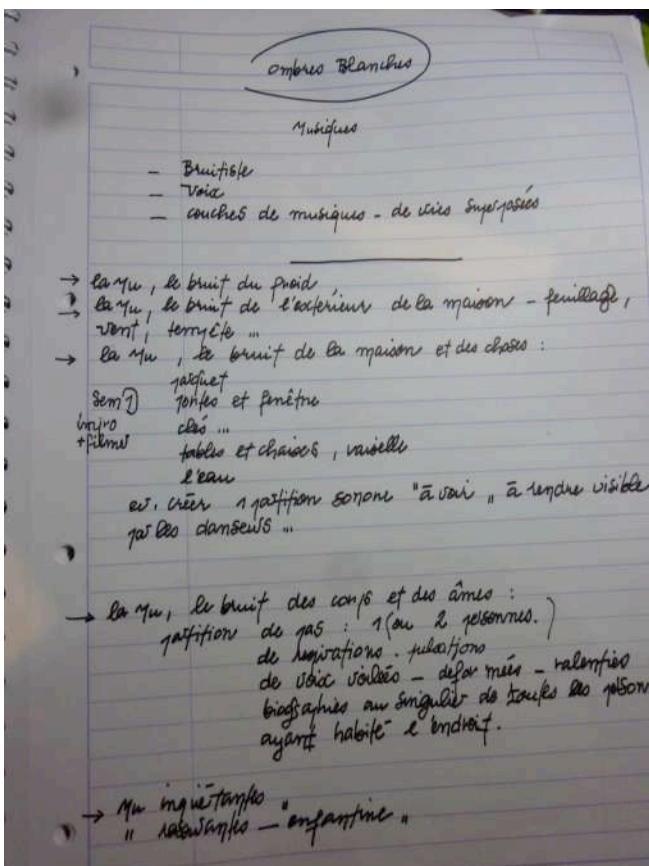 Ombres Blanches
Musiques
- Bruitiste
- Voix
- couches de musiques - de vies superposées
→ la Mu, le bruit du froid
→ la Mu, le bruit de l'extérieur de la maison - feuillage,
vent, tempête ...
→ la Mu, le bruit de la maison et des choses :
parquet
Sem 1) portes et fenêtre
impro clés ...
+ filmer tables et chaises, vaiselle
l'eau
ev. créer 1 partition sonore "à voir" à rendre visible
par les danseurs ...
→ la Mu, le bruit des corps et des âmes :
partition de pas : 1 (ou 2 personnes.)
de respirations. pulsations
de voix voilées - déformées - ralenties
biographies au singulier de toutes les person
ayant habité l'endroit.
→ Mu inquiétantes
" rassurantes - "enfantine"